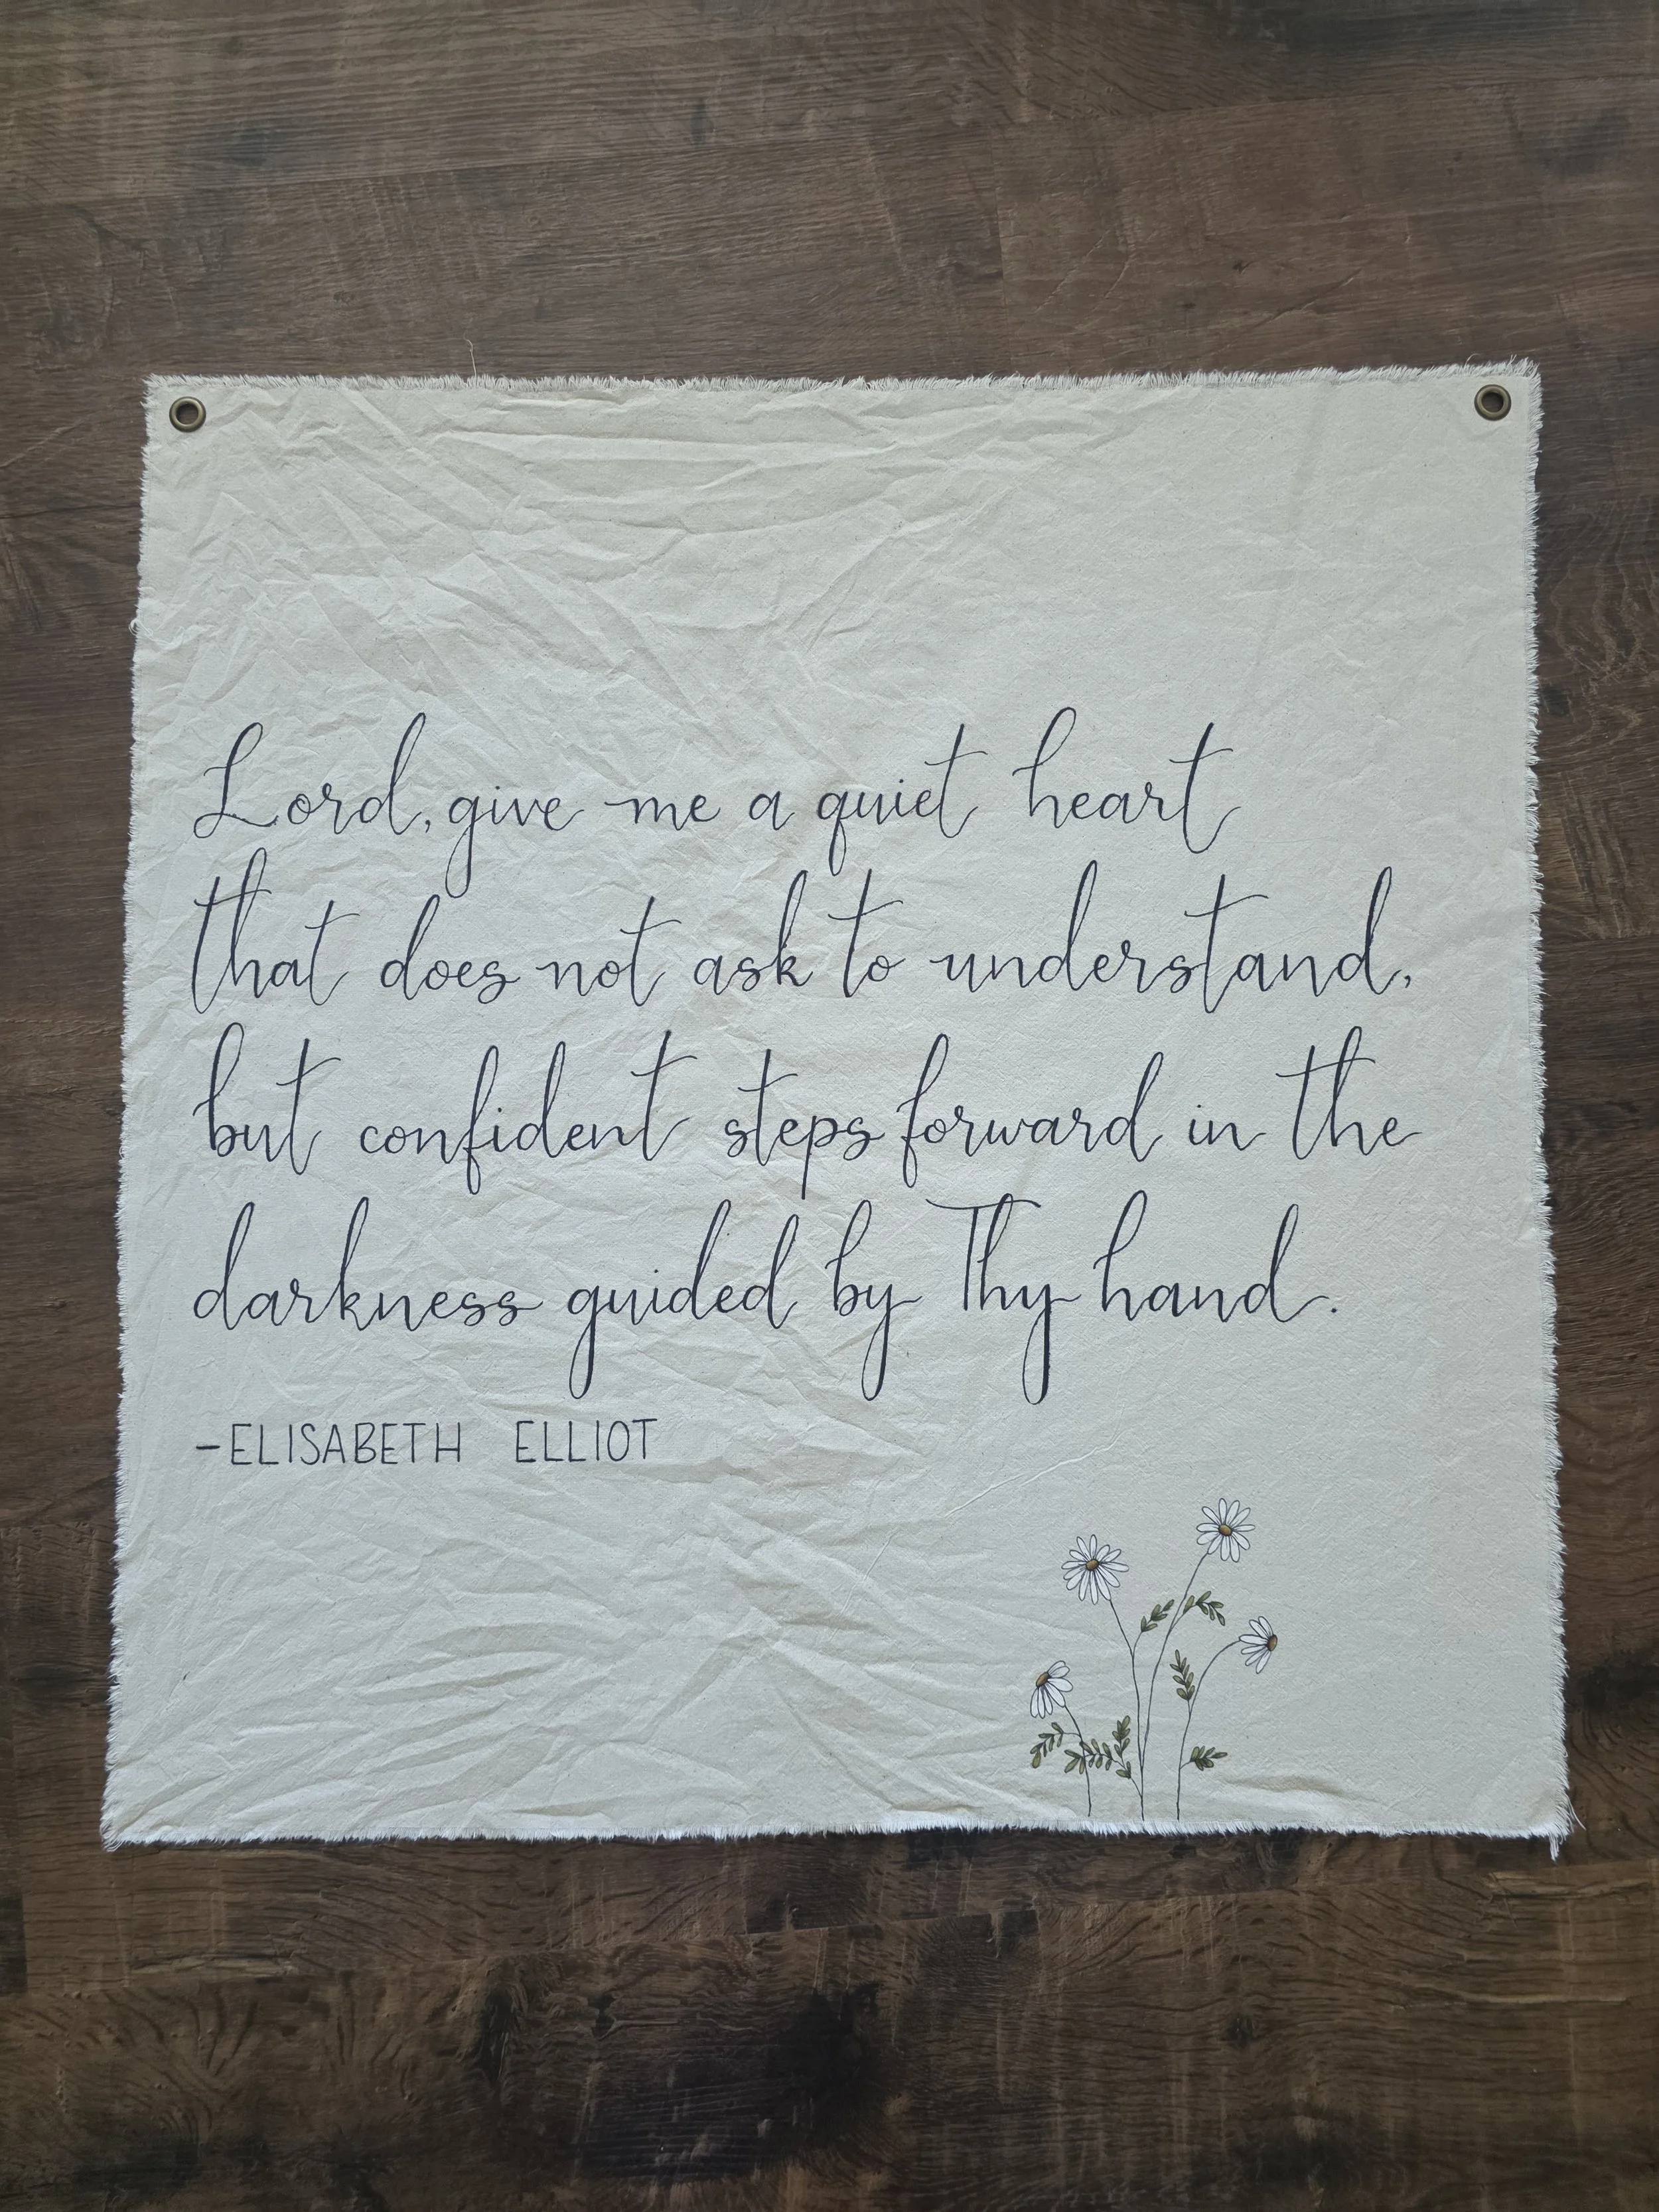 Lord, give me a quiet heart
that does not ask to understand,
but confident steps forward in the
darkness guided by Thy hand.
-ELISABETH ELLIOT